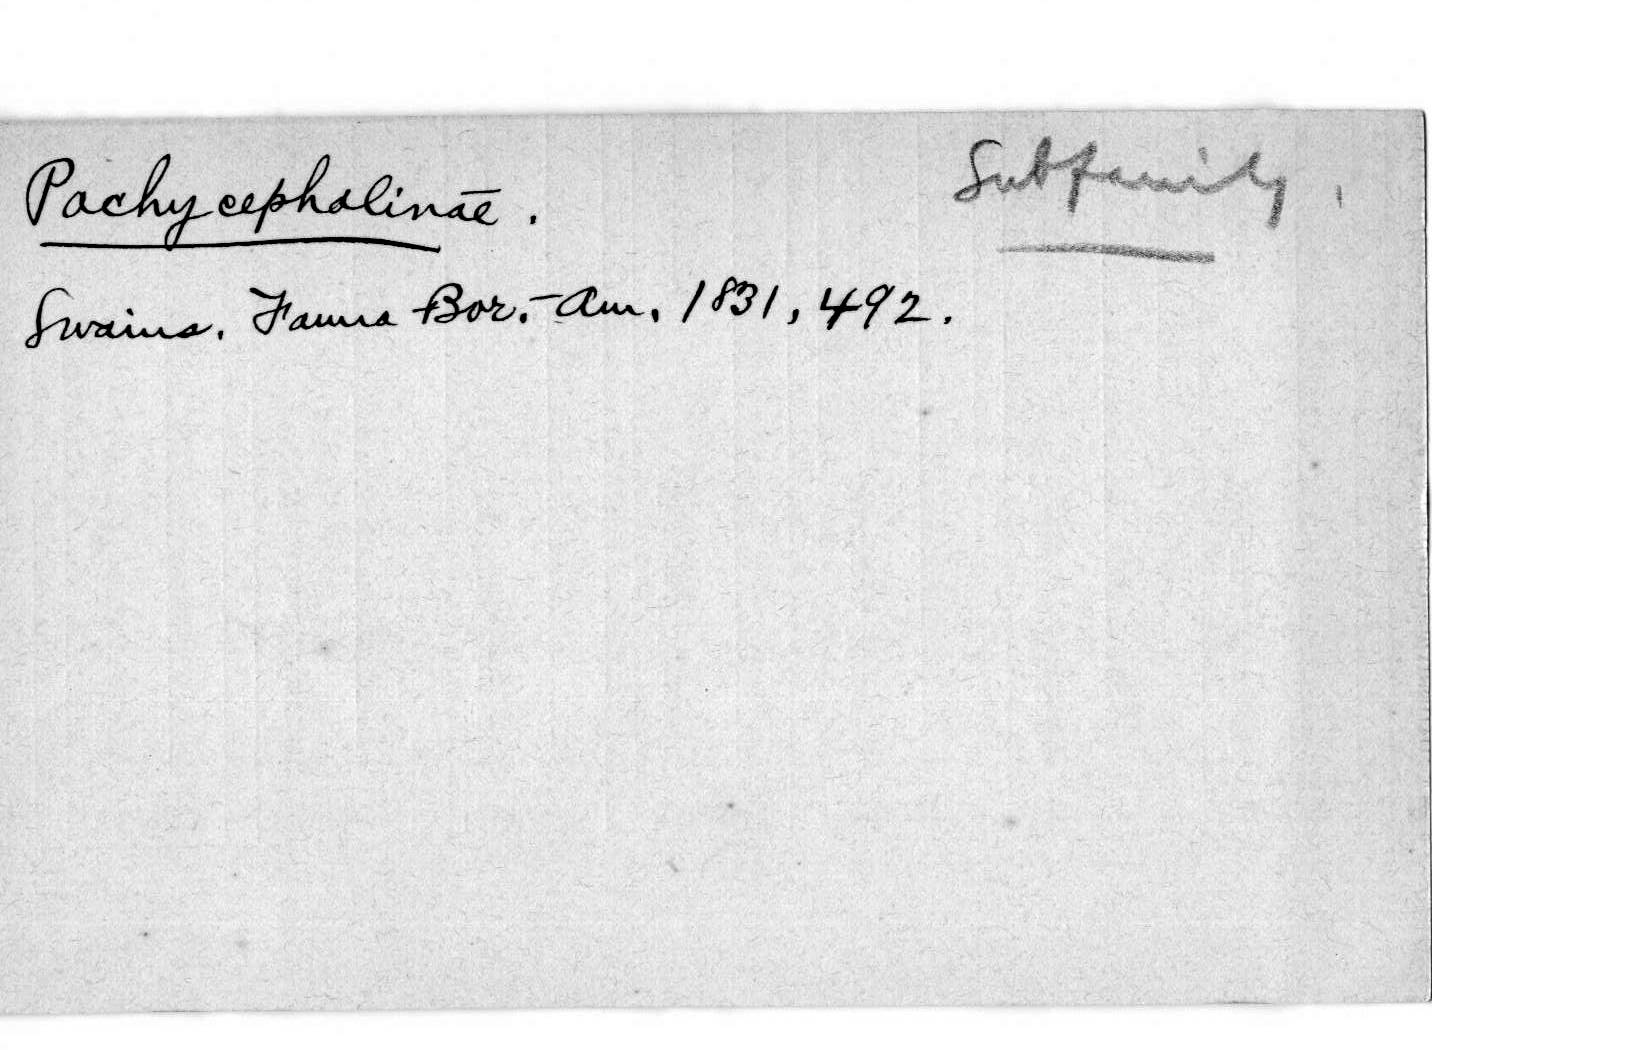 Pachycephalinae.
Subfamily.
Swains. Fauna Bor.-Am. 1831, 492.